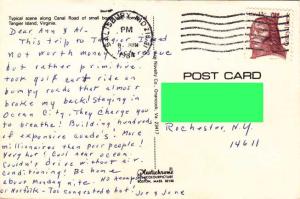 Typical scene along Canal Road of small
Tangier Island, Virginia.
Dear Ann & Al-
This trip to Tangier Island
not worth money
but rather primitive.
took golf cart ride on
bumpy roads that almost
broke my back! Staying in
Ocean City. They charge you
to breathe! Building hundreds
of expensive condo's. More
millionaires than poor people!
Very hot! Cool near ocean
Couldn't drive without air
conditioning! Be home
about Monday nite. No
or Norfolk - Too congested & hot!
Joe & June
SALISBURY, MD 218
PM
JUN
POST CARD
Rochester, N.Y.
14611